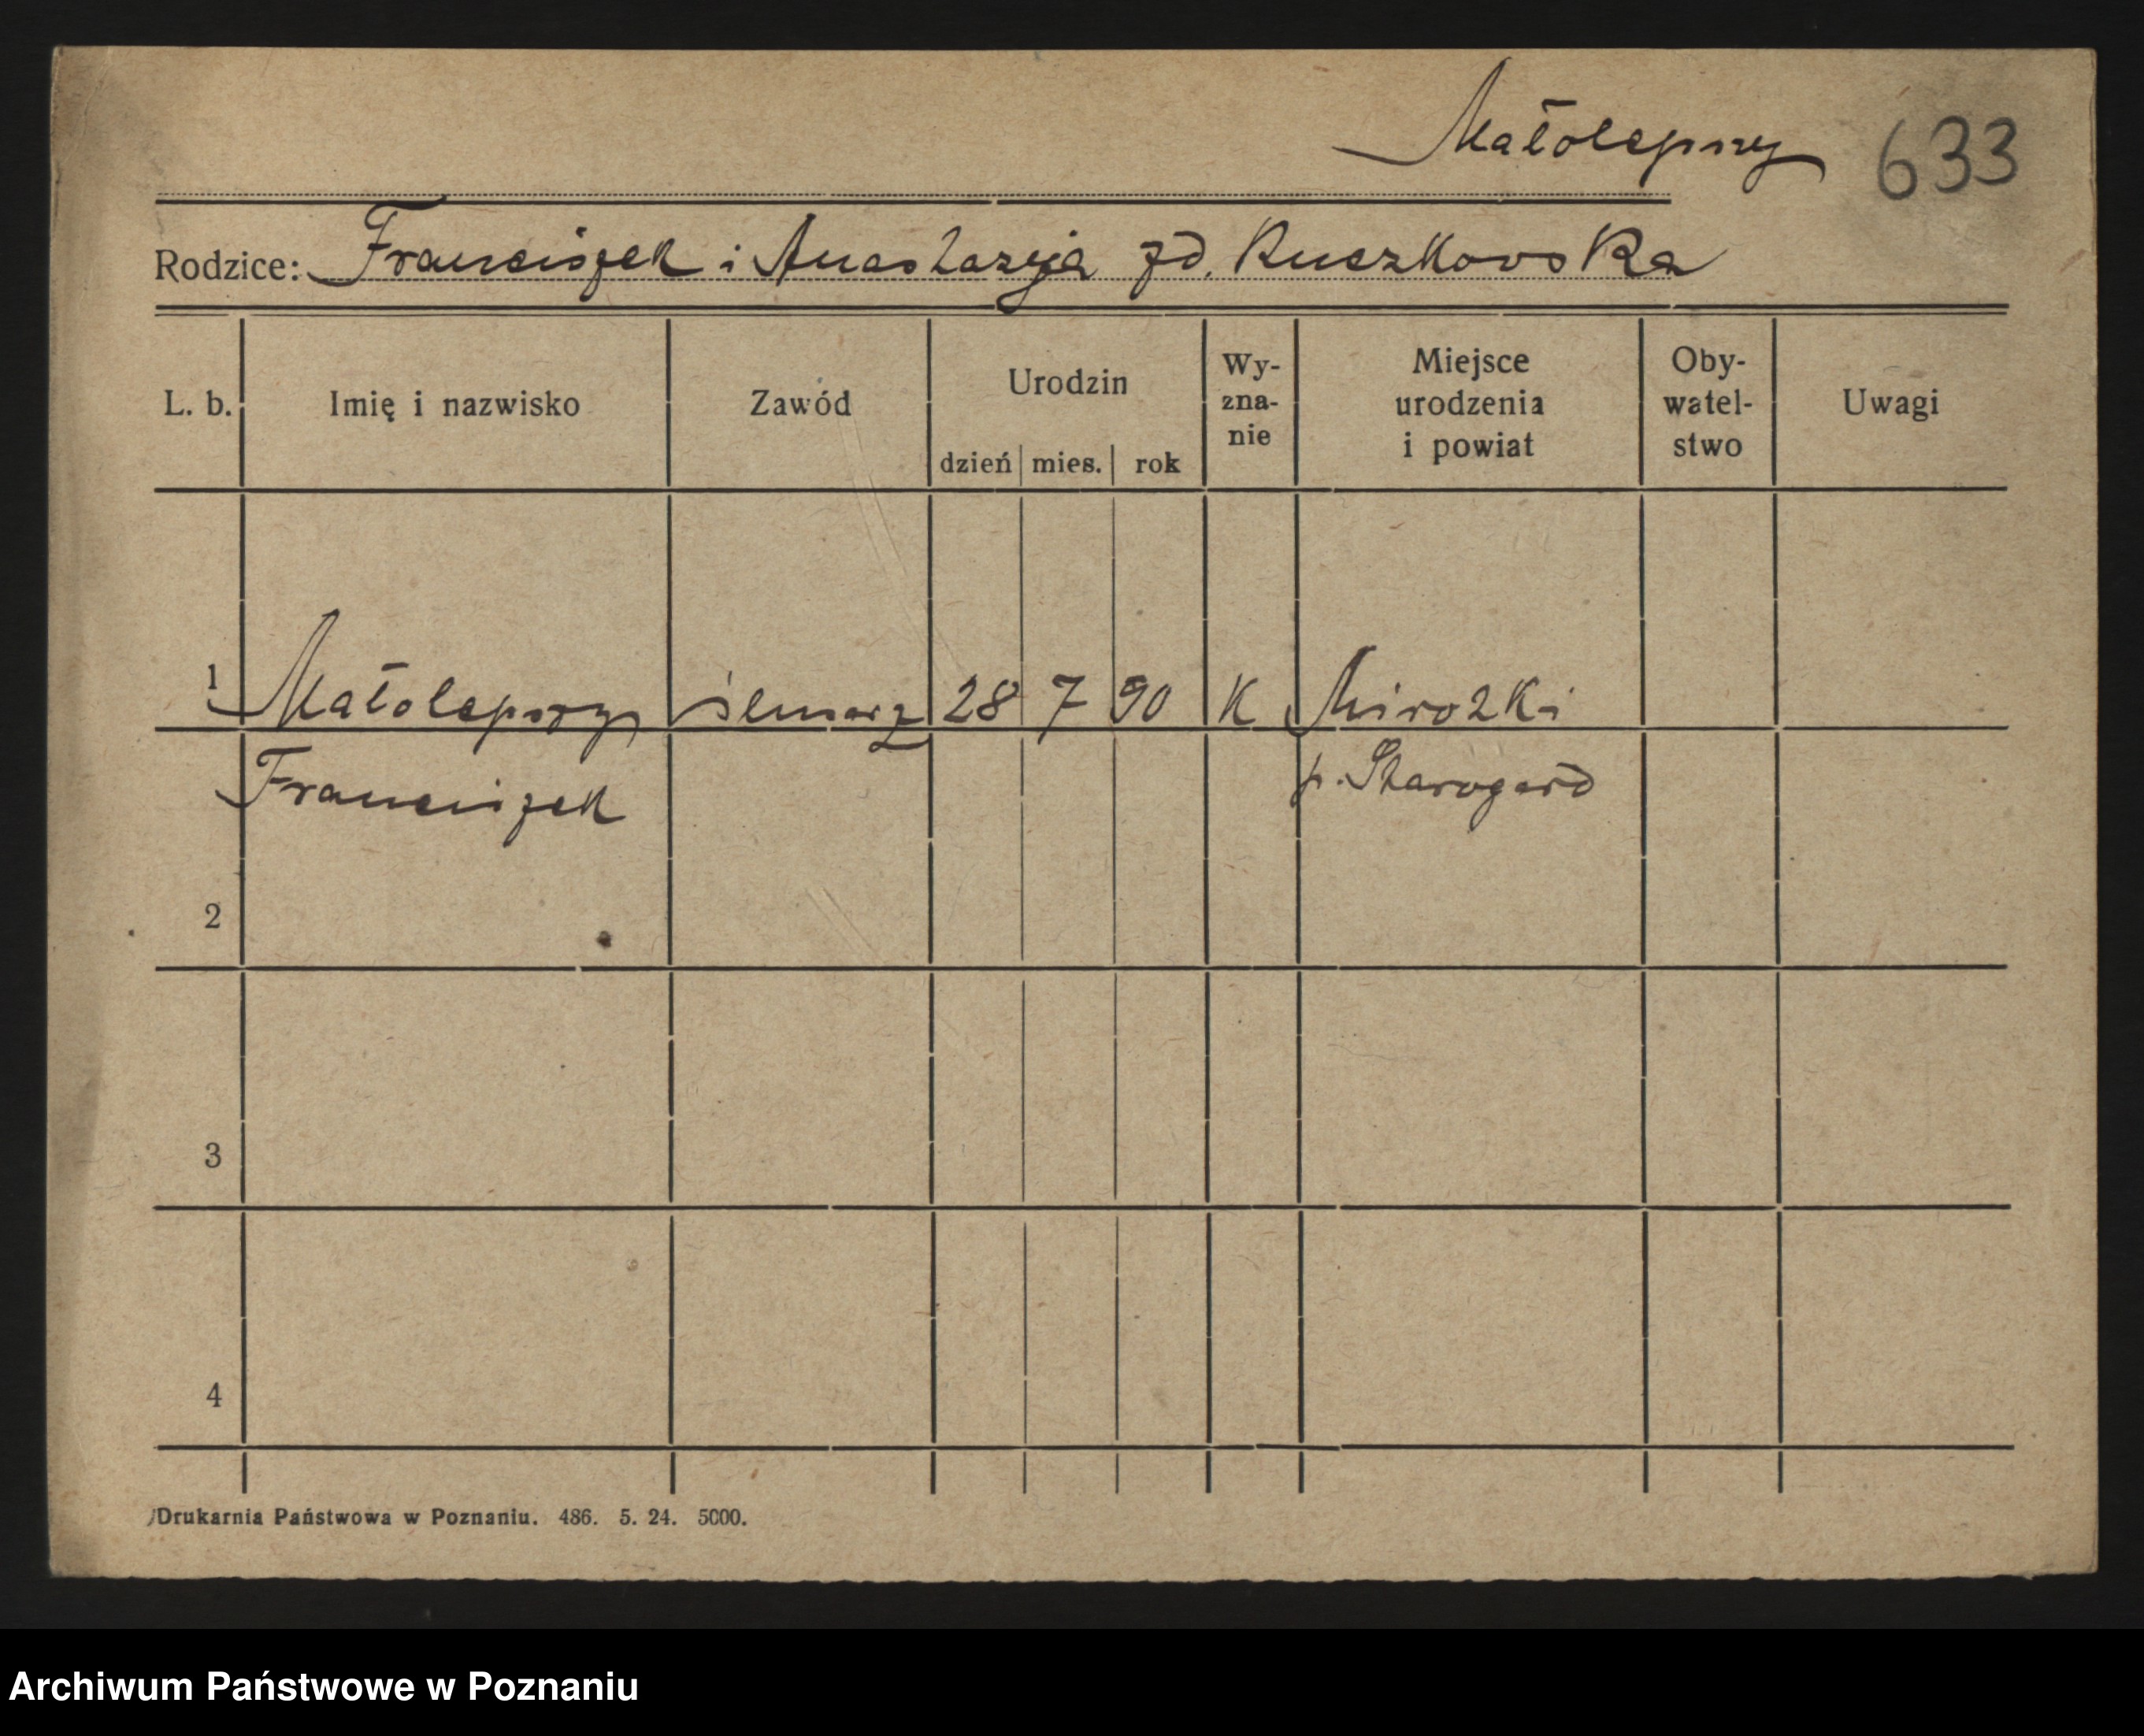 Małolepszy 633
Rodzice: Franciszek i Anastazja zd. Ruczkowska
L. b. Imię i nazwisko Zawód Urodzin dzień mies. rok Wy-zna-nie Miejsce urodzenia i powiat Oby-watel-stwo Uwagi
1 Małolepszy ślusarz 28 7 90 K Mirotki
Franciszek p. Starogard
2
3
4
Drukarnia Państwowa w Poznaniu. 486. 5. 24. 5000.
Archiwum Państwowe w Poznaniu